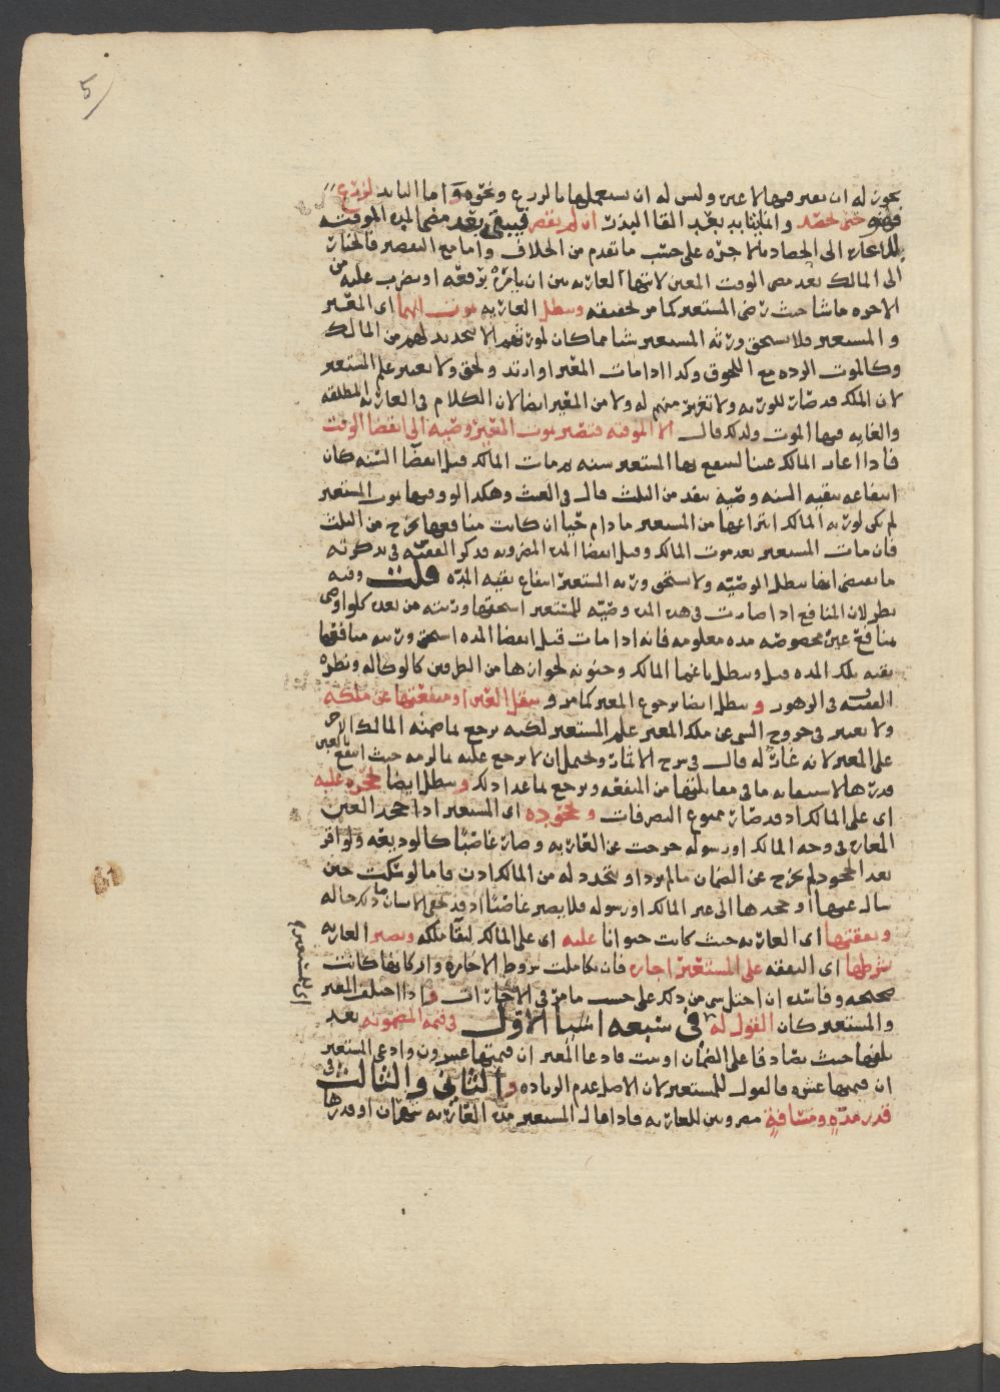 5
يجوز له ان يعير فيها لا غير وليس له ان يستعملها بالزرع ونحوه واما التأبيد لزرع
فهو حتى يحصد والتأبيد بعد القا البذر ان لم يقصر فيبقى بعد مضي المدة الموقته
للاعاره الى الحصاد بالاجره على حسب ما تقدم من الخلاف واما مع التقصير فالخيار
الى المالك بعد مضي الوقت المعين لانتها العاريه بين ان يامره برفعه او يضرب عليه من
الاجره ما شا حيث رضي المستعير كما مر تحقيقه وتبطل العاريه بموت ايهما اي المعير
و المستعير فلا يستحق ورثه المستعير شيا مما كان لمورثهم الا بتجديد لهم من المالك
وكالموت الرده مع اللحوق وكذا اذا مات المعير او ارتد ولحق ولا تغير علم المستعير
لان الملك قد صار للورثه ولا تغرير منهم له ولا من المعير ايضا لان الكلام في العاريه المطلقه
والغايه فيها الموت ولذلك قال الا الموقته فتصير بموت المعير وصيه الى انقضا الوقت
فاذا اعار المالك عينا لينتفع بها المستعير سنه ثم مات المالك قبل انقضا السنه كان
انتفاعه بقيه السنه وصيه تنفذ من الثلث قال في الغيث وهكذا لو وقتها بموت المستعير
لم يكن لورثه المالك انتزاعها من المستعير ما دام حيا ان كانت منافعها تخرج من الثلث
فان مات المستعير بعد موت المالك وقبل انقضا المده المضروبه فذكر الفقيه ف في تذكرته
ما يقتضي انها تبطل الوصيه ولا يستحق ورثه المستعير انتفاع بقيه المده قلت وفيه
نظر لان المنافع اذا صارت في هذه المده وصيه للمستعير استحقها ورثته من بعده كلو اوصى
بمنافع عين مخصوصه مده معلومه فانه اذا مات قبل انقضا المده استحق ورثته منافعها
بقيه تلك المده قيل وتبطل باغما المالك وجنونه لجوازها من الطرفين كالوكاله ونظره
الفقيه ف في الزهور و تبطل ايضا برجوع المعير كما مر و بنقل العين او منفعتها عن ملكه
ولا يعتبر في خروج الشي عن ملك المعير علم المستعير لكنه يرجع بما ضمنه المالك الاخر
على المعير لانه غار له قال في شرح الاثمار ويحتمل ان لا يرجع عليه بما لزمه حيث انتفع بالعين
قدرها لاستيفائه ما في مقابلتها من المنفعه ويرجع بما عدا ذلك وتبطل ايضا بحجره عليه
اي على المالك اذ قد صار ممنوع التصرفات و بجحوده اي المستعير اذا جحد العين
المعاره في وجه المالك او رسوله خرجت عن العاريه وصار غاصبا كالوديعه ولو اقر
بعد الجحود لم يخرج عن الضمان ما لم يرد او يتجدد له من المالك اذن فاما لو سكت حين
سال عنها او جحدها الى غير المالك او رسوله فلا يصير غاصبا اذ قد يخفي الانسان ما ذكر حاله
و نفقتها اي العاريه حيث كانت حيوانا عليه اي على المالك لبقا ملكه وتصير العاريه
بشرطها اي النفقه على المستعير اجاره فان تكاملت شروط الاجاره واركانها كانت
صحيحه وفاسده ان اختل شي من ذلك على حسب ما مر في الاجارات و اذا اختلف المعير
والمستعير كان القول له في سبعه اشيا الاول في قيمه المضمونه بعد
اي للمستعير
تلفها حيث تصادقا على الضمان او ثبت فادعا المعير ان قيمتها عشرون وادعى المستعير
ان قيمتها عشره فالقول للمستعير لان الاصل عدم الزياده و الثاني والثالث في
قدر مده ومسافه مضروبين للعاريه فاذا قال المستعير مده العاريه شهران او قدرها